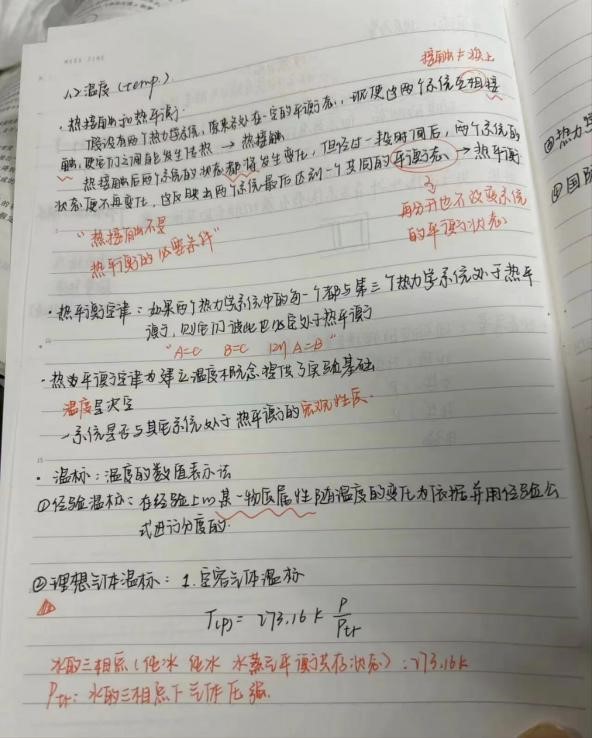 1.2 温度 (temp.)
接触≠换上
·热接触和热平衡:
假设有两个热力学系统,原来各处在一定的平衡态,现使这两个系统互相接
触,使它们之间能发生传热 → 热接触
热接触后两个系统的状态都将发生变化,但经过一段时间后,两个系统的
状态便不再变化,这反映出两个系统最后达到一个共同的平衡态 → 热平衡
再分开也不改变系统
的平衡状态
"热接触不是
热平衡的必要条件"
·热平衡定律:如果两个热力学系统中的每一个都与第三个热力学系统处于热平
衡,则它们彼此也必定处于热平衡
"A=C B=C 则A=B"
·热平衡定律为建立温度概念提供了实验基础
温度是决定
一系统是否与其它系统处于热平衡的宏观性质.
·温标:温度的数值表示法
①经验温标:在经验上以某一物质属性随温度的变化为依据并用经验公
式进行分度的.
②理想气体温标: 1.定容气体温标
T(p) = 273.16K P/Ptr
水的三相点(纯冰 纯水 水蒸气平衡共存状态):273.16K
Ptr:水的三相点下气体压强.
②热力学
④国际